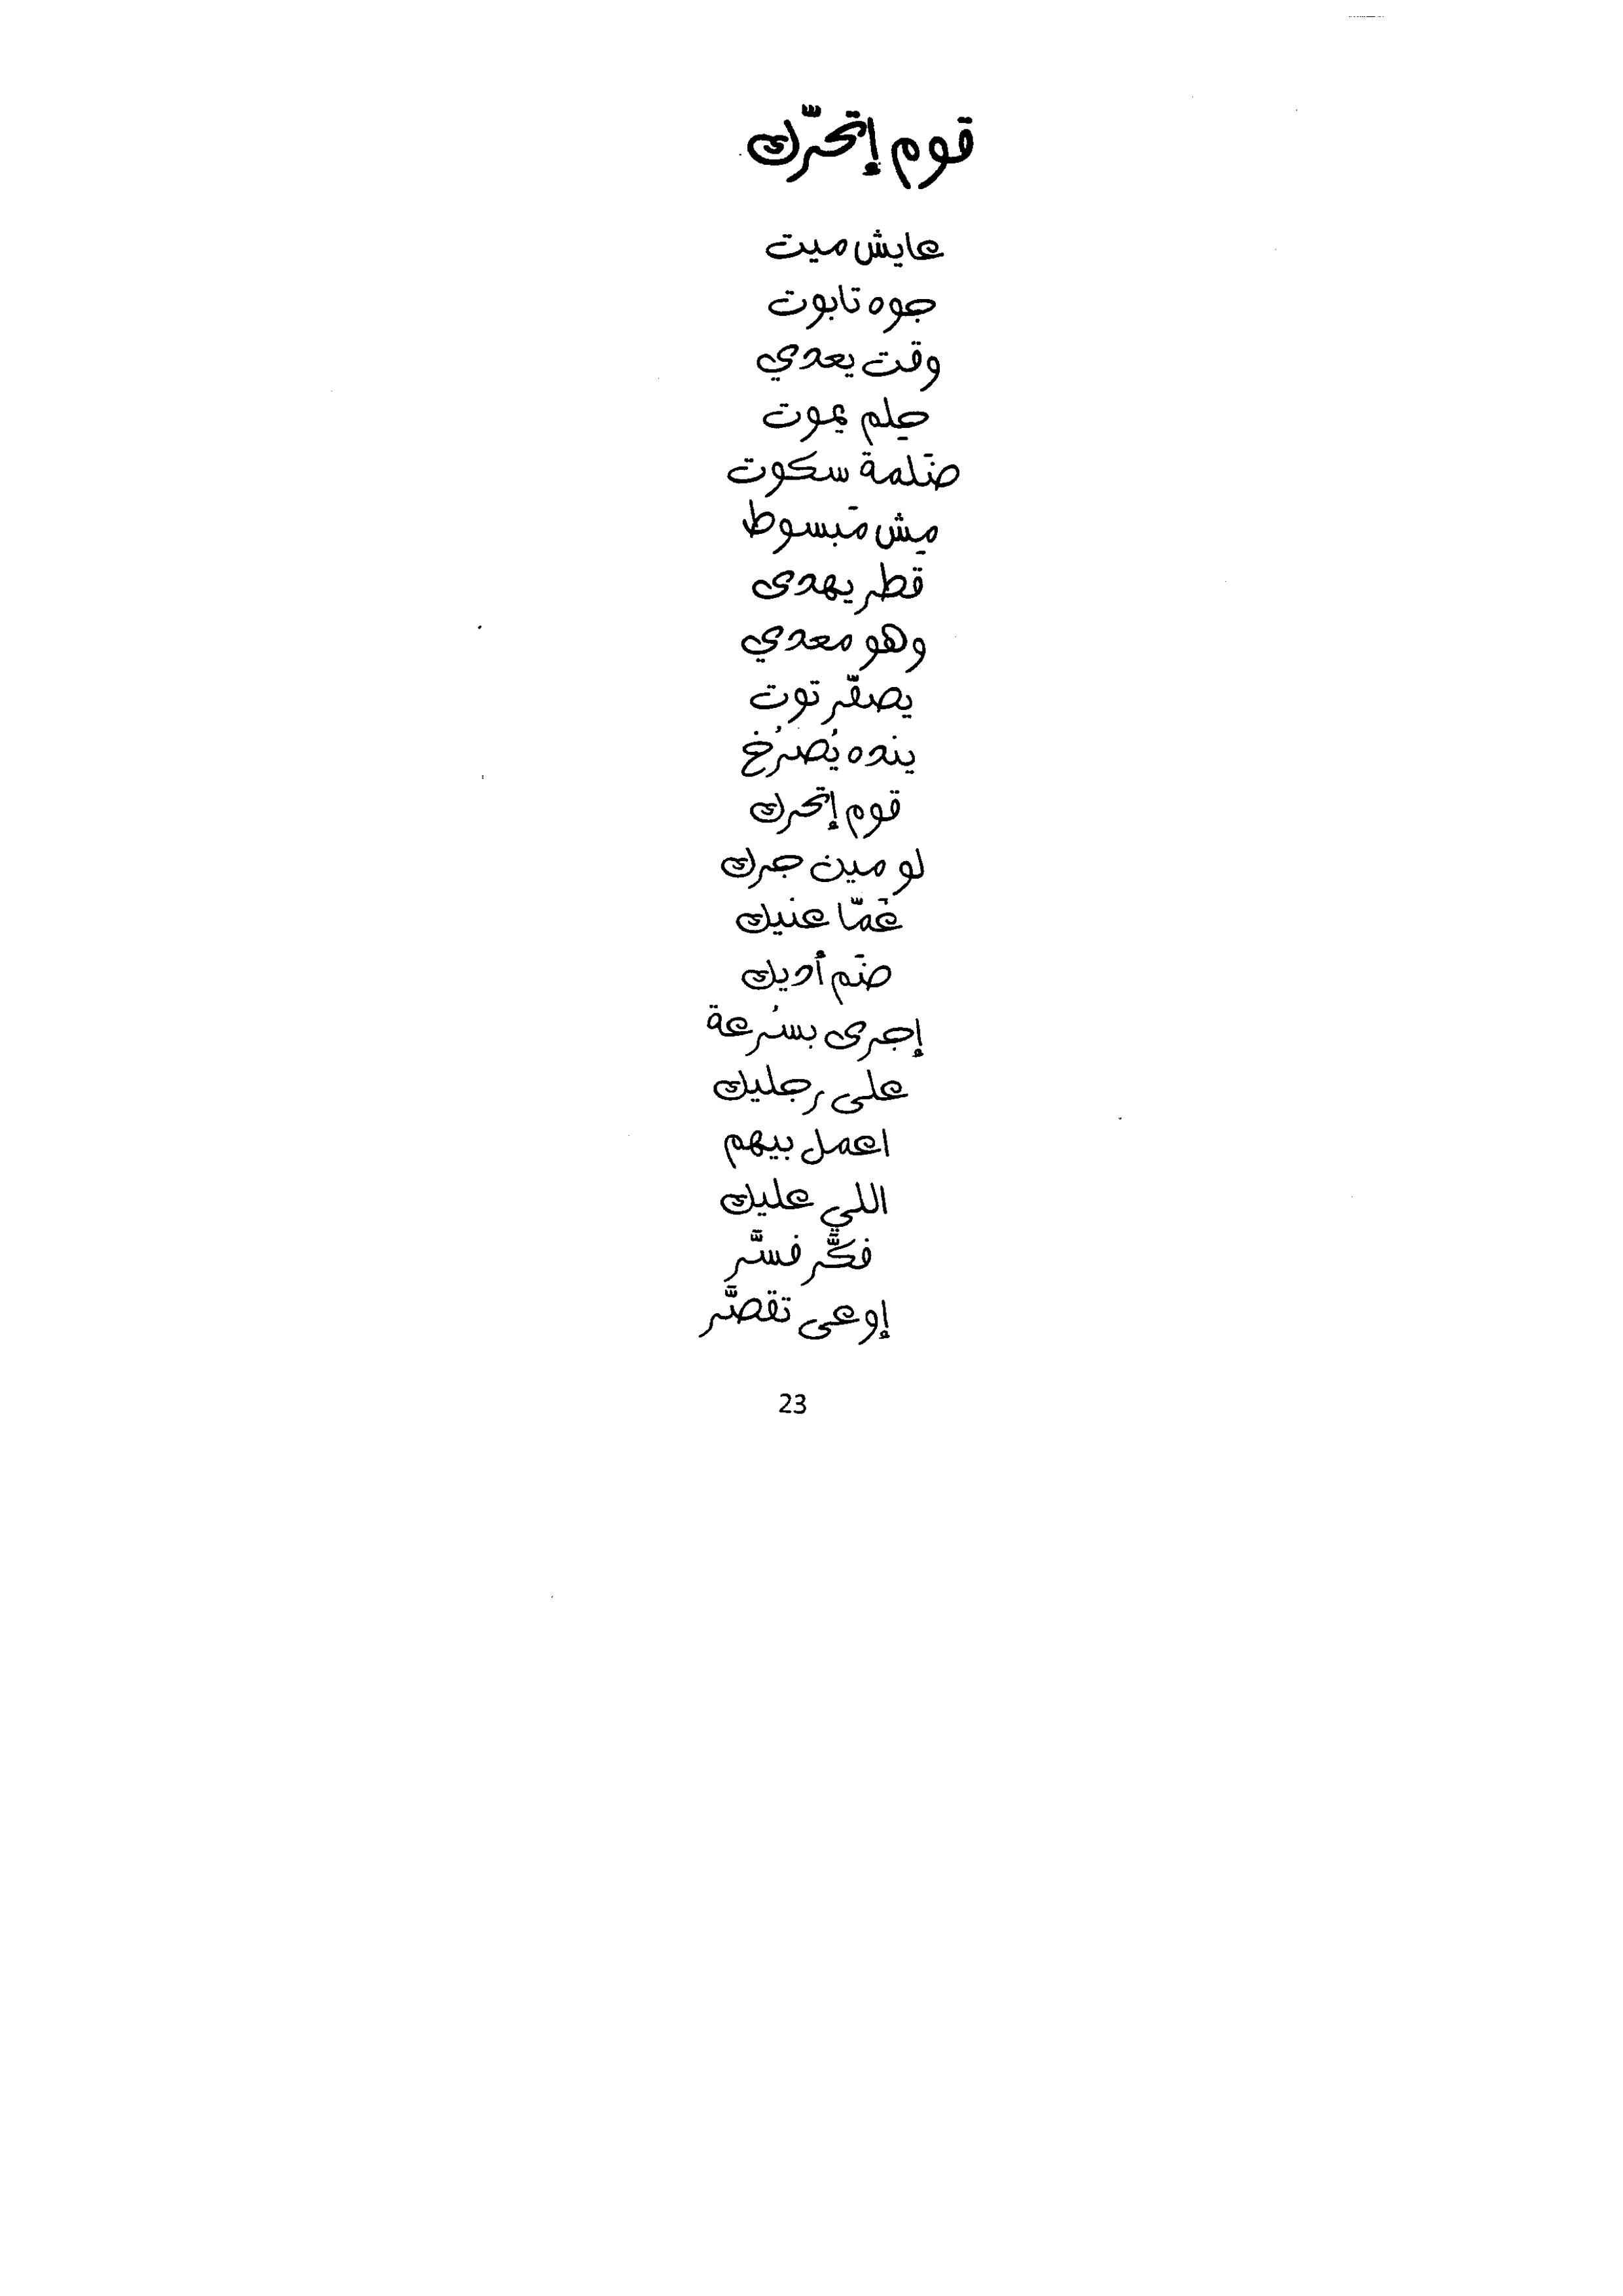 قوم إتحرّك
عايش ميت
جوه تابوت
وقت يعدي
حِلم يموت
ضَلمة سكوت
مِش مَبسوط
قطر يهدى
وهو معدي
يصفّر توت
ينده يُصرُخ
قوم إتحرك
لو مين جرك
غَمّا عنيك
ضَم أديك
إجرى بسُرعة
على رجليك
اعمل بيهم
اللي عليك
فكَّر فسَّر
إوعى تقصَّر
23